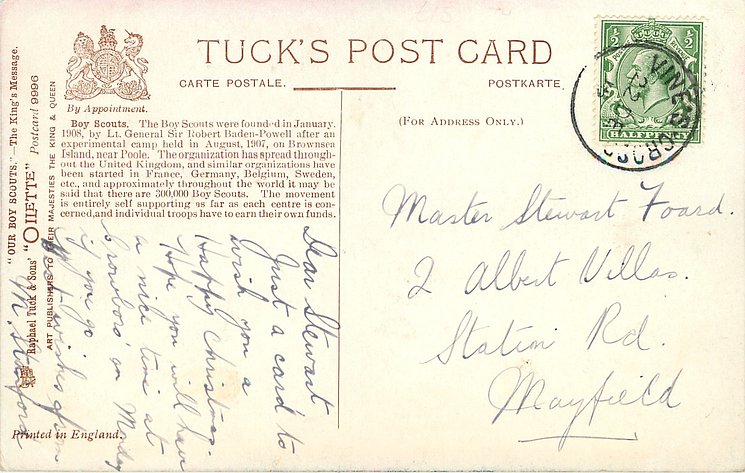 TUCK'S POST CARD
CARTE POSTALE.
POSTKARTE
By Appointment.
(FOR ADDRESS ONLY.)
Boy Scouts. The Boy Scouts were founded in January,
1908, by Lt. General Sir Robert Baden-Powell after an
experimental camp held in August, 1907, on Brownsea
Island, near Poole. The organization has spread through-
out the United Kingdom, and similar organizations have
been started in France, Germany, Belgium, Sweden,
etc., and approximately throughout the world it may be
said that there are 300,000 Boy Scouts. The movement
is entirely self supporting as far as each centre is con-
cerned, and individual troops have to earn their own funds.
"OUR BOY SCOUTS."—The King's Message.
Raphael Tuck & Sons' "OILETTE" Postcard 9996
ART PUBLISHERS TO THEIR MAJESTIES THE KING & QUEEN
Printed in England.
Dear Stewart
Just a card to
wish you a
Happy Christmas.
Hope you will have
a nice time at
Crowboro' on Monday
if you go.
Best wishes from
M.
Master Stewart Foard.
2 Albert Villas.
Station Rd.
Mayfield
HALFPENNY
CROSS
22 DE